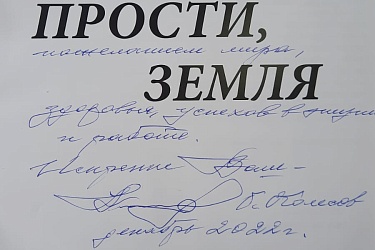 ПРОСТИ,
пожеланием мира,
ЗЕМЛЯ
здоровья, успехов в жизни
и работе.
Искренне Ваш -
В. Колесов
декабрь 2022г.